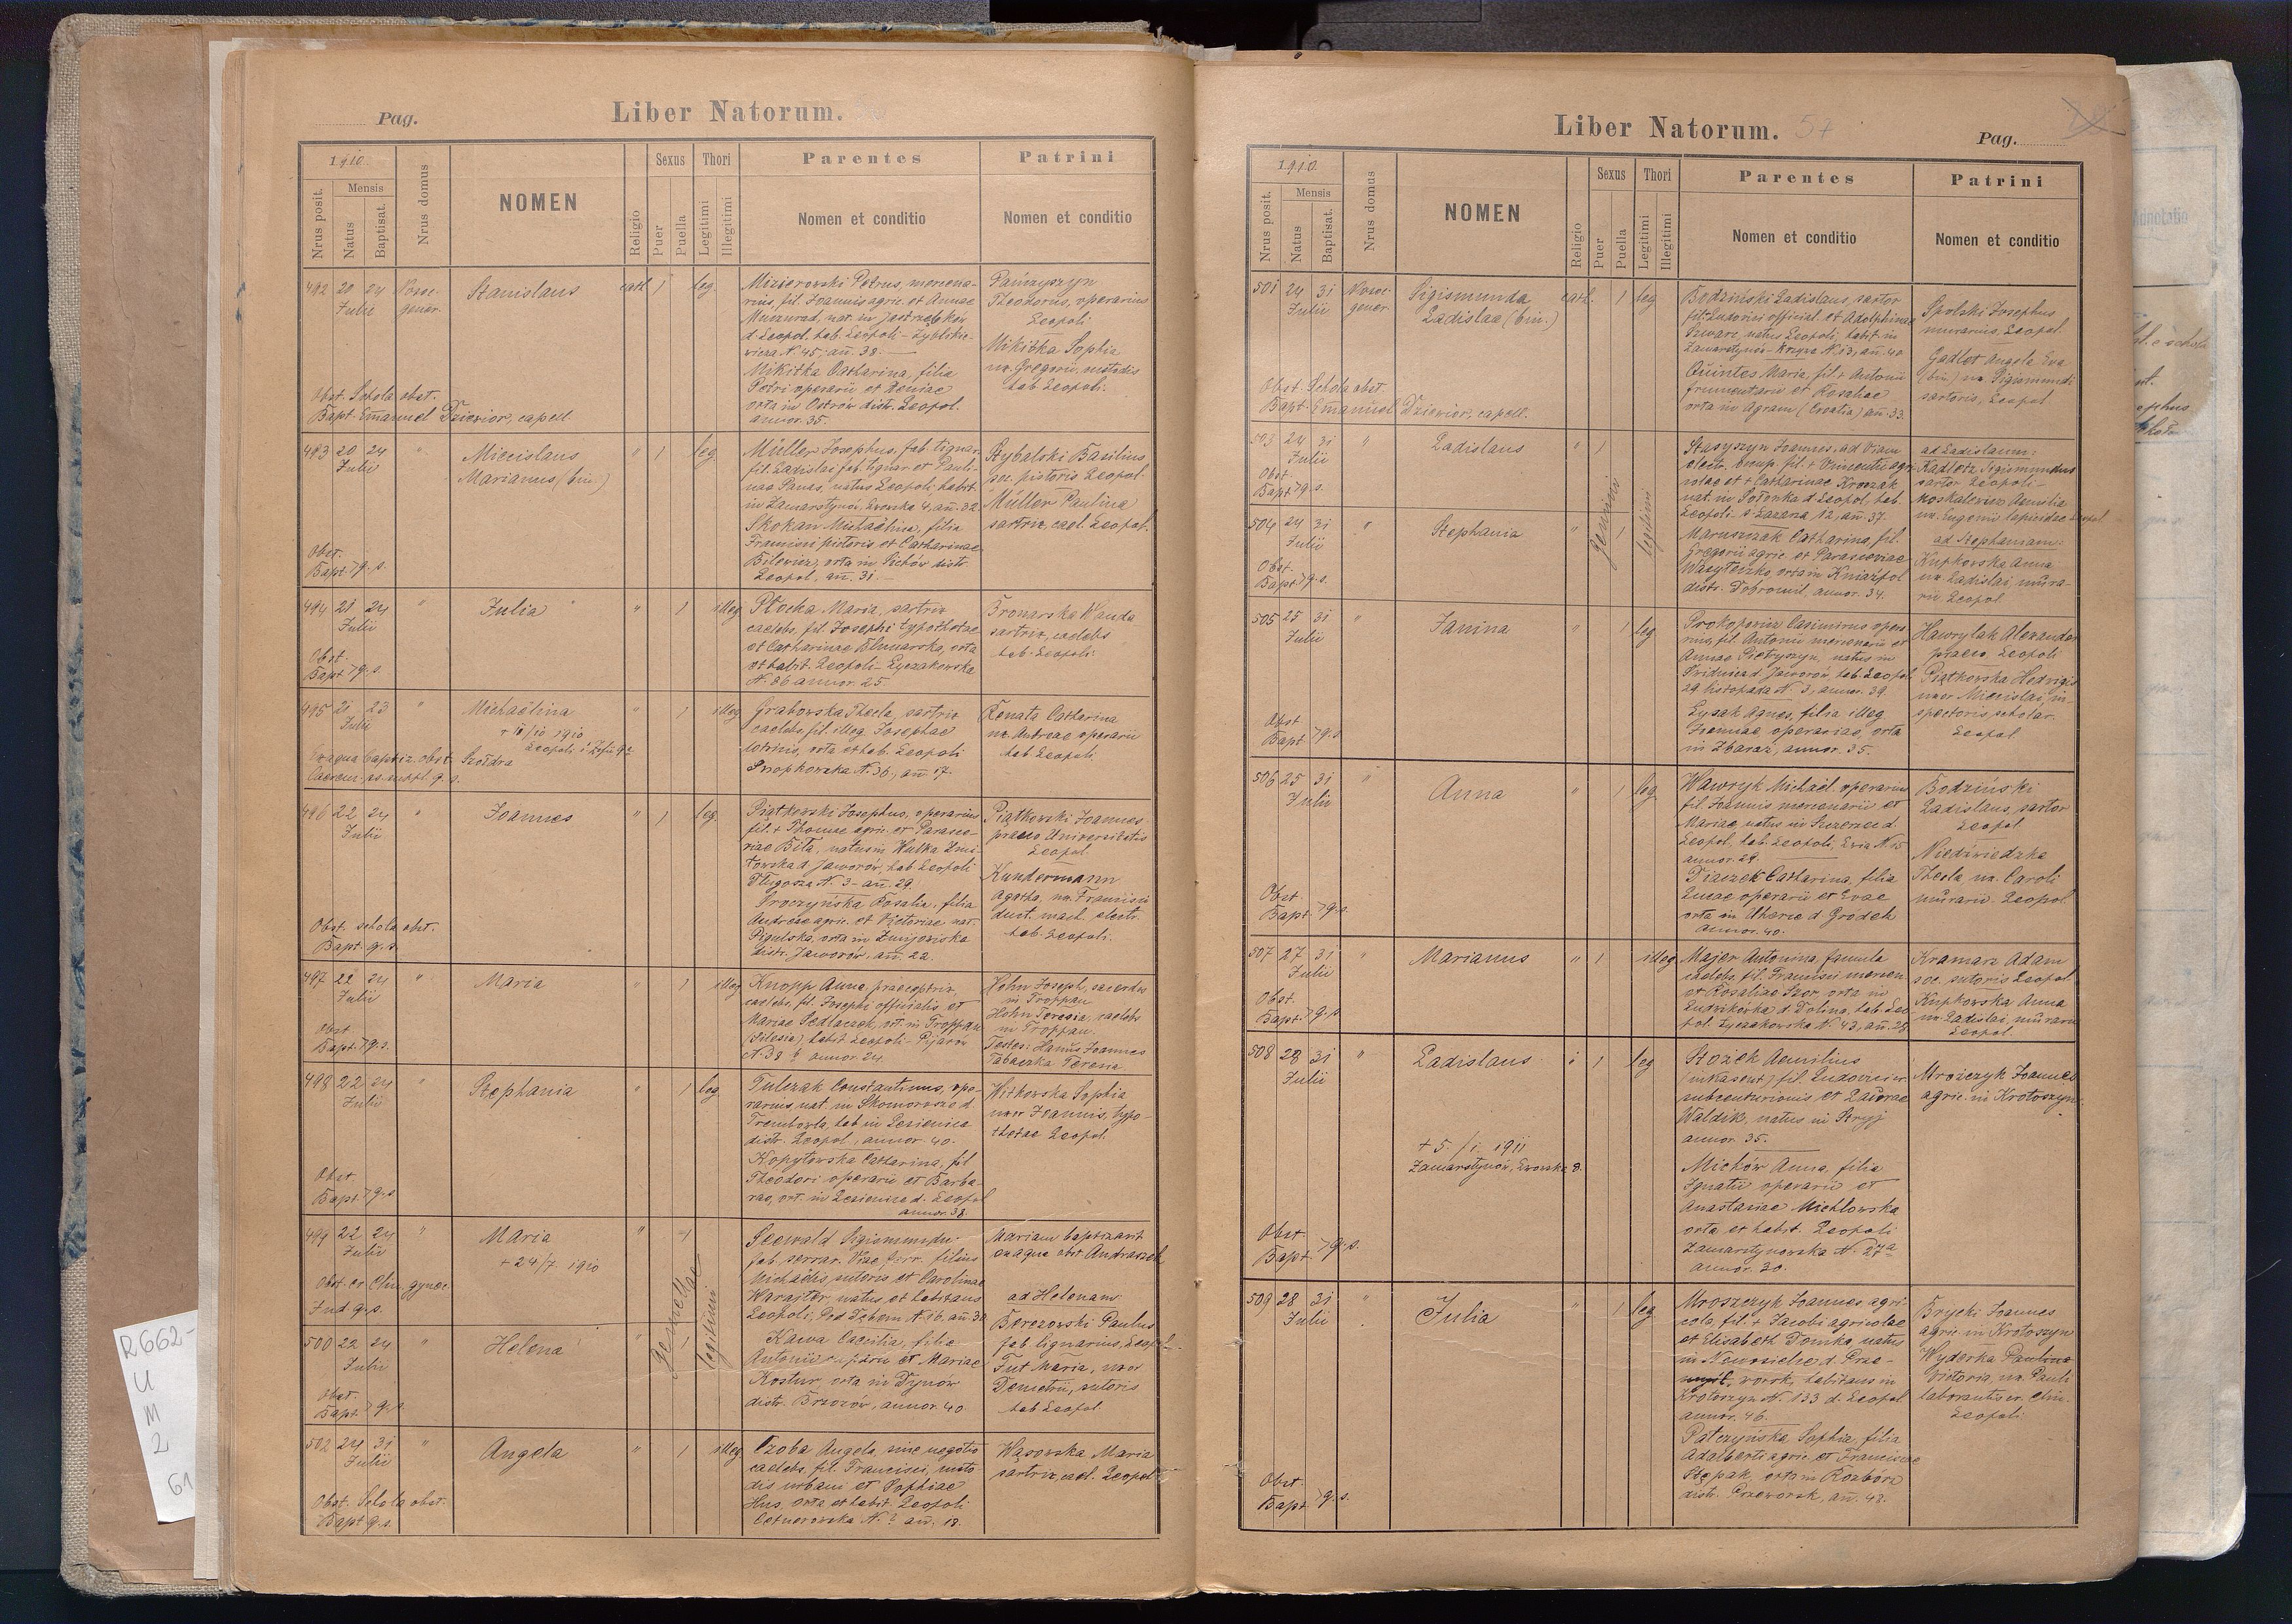 Pag.
Liber Natorum.
1910.
Nrus posit.
Mensis
Natus
Baptisat.
Nrus domus
NOMEN
Religio
Sexus
Puer
Puella
Thori
Legitimi
Illegitimi
Parentes
Nomen et conditio
Patrini
Nomen et conditio
492 20 24 Julii
Stanislaus
cath 1 leg
Mizierowski Petrus, mercena-
rius, fil. Joannis agric. et Annae
d. Leopol. hab. Leopoli - Zyblikie-
wicza N. 45, ann. 38.
Mikitka Catharina, filia
Petri operarii et Xeniae
orta in Ostrów distr. Leopol.
annor. 35.
Theodorus, operarius
Leopoli
Mikitka Sophia
ux. Gregorii, custodis
hab. Leopoli.
Obst. Schola obst.
Bapt. Emanuel Dziewior, capell.
493 20 24 Julii "
Miecislaus
Marianus (bin.)
" 1 leg
Müller Josephus, fab. lignar.
fil. Ladislai fab. lignar. et Pauli-
nae Panes, natus Leopoli, habit.
in Zamarstynów, Lwowska 4, ann. 32.
Skokan Michaëlina, filia
Francisci pictoris et Catharinae
Bilewicz, orta in distr.
Leopol., ann. 31.
Rybalski Basilius
soc. pistoris Leopol.
Müller Paulina
sartrix, cael. Leopol.
Obst.
Bapt. > q. s.
494 21 24 Julii "
Julia
" 1 illeg
Płocka Maria, sartrix
caelebs, fil. Josephi typothetae
et Catharinae orta
et habit. Leopoli - Łyczakowska
N. 86 annor. 25.
Bronarska Wanda
sartrix, caelebs
hab. Leopoli
Obst.
Bapt. > q. s.
495 21 23 Julii "
Michaëlina
" 1 illeg
Grabowska Thecla, sartrix
caelebs, fil. illeg. Josephae
lotricis, orta et hab. Leopoli
Snopkowska N. 36, ann. 17.
Renata Catharina
ux. Andreae operarii
hab. Leopoli
Ex aqua baptiz. obst. Szołdra
496 22 24 Julii "
Joannes
" 1 leg.
Piątkowski Josephus, operarius
fil. + Thomae agric. et Parasce-
viae Bita, natus in Hulka Żmi-
jowska d. Jaworów, hab. Leopoli
Długosza N. 3 - ann. 29.
Groczyńska Rosalia, filia
Andreae agric. et Victoriae nat.
Pigulska, orta in Żmijowiska
distr. Jaworów, ann. 22.
Piątkowski Joannes
praeco Universitatis
Leopol.
Kundermann
Agatha, ux. Francisci
duct. mach. electr.
hab. Leopoli.
Obst. schola obst.
Bapt. q. s.
497 22 24 Julii "
Maria
" 1 illeg
Knopp Anna, praeceptrix,
caelebs, fil. Josephi officialis et
Mariae Sedlaczek, ort. in Troppau
(Silesia) habit. Leopoli - Pijarów
annor. 24.
Hohn Joseph, sacerdos
in Troppau
Hohn Teresia, caelebs
in Troppau.
Testes: Hanus Joannes
Obst.
Bapt. > q. s.
498 22 24 Julii "
Stephania
" 1 leg
Tulczak Constantinus, ope-
rarius, nat. in Skomorosze d.
Trembowla, hab. in Lesienice
distr. Leopol., annor. 40.
Kopytowska Catharina, fil.
Theodori operarii et Barba-
rae, ort. in Lesienice d. Leopol
annor. 38.
Witkowska Sophia
uxor Joannis, typo-
thetae Leopol.
Obst.
Bapt. > q. s.
499 22 24 Julii "
Maria
+ 24/7. 1910
" 1
Gemellae
legitimi
Seewald Sigismundus
fab. serrar. Viae ferr. filius
Michaëlis, sutoris et Carolinae
Warajter, natus et habitans
Leopoli, Pod Dębem N. 16, ann. 32
Kawa Caecilia, filia
Antonii et Mariae
Kostur, orta in Dynów
distr. Brzozów, annor. 40.
Mariam baptizavit
ex aqua obst.
ad Helenam:
Berezowski Paulus
fab. lignarius, Leopol.
Tut Maria, uxor
Demetrii, sutoris
hab. Leopol.
Obst. ex Clin. gynec.
500 22 24 Julii "
Helena
Obst.
Bapt. > q. s.
502 24 31 Julii "
Angela
" 1 illeg
Czoba Angela, sine negotio
caelebs, fil. Francisci, custo-
dis urbani et Sophiae
Hus, orta et habit. Leopoli
Cetnerowska N. ? ann. 18.
Wąsowska Maria
sartrix, cael. Leopol
Obst. Schola obst.
Bapt. q. s.
Liber Natorum. 57
Pag.
1910.
Nrus posit.
Mensis
Natus
Baptisat.
Nrus domus
NOMEN
Religio
Sexus
Puer
Puella
Thori
Legitimi
Illegitimi
Parentes
Nomen et conditio
Patrini
Nomen et conditio
501 24 31 Julii
Sigismunda
Ladislaa (bin.)
cath. 1 leg
Bodziński Ladislaus, sartor
fil. Ludovici official. et Adolphinae
Szwarc, natus Leopoli, habit. in
Zamarstynów - Krzywa N. 13, ann. 40
Quintes Maria, fil. + Antonii
frumentarii et Rosaliae
orta in Agram (Croatia) ann. 33.
Spolski Josephus
murarius, Leopol.
Gadlot Angela Eva
(bin.) ux. Sigismundi
sartoris, Leopol
Obst. Schola obst.
Bapt. Emanuel Dziewior, capell.
503 24 31 Julii "
Ladislaus
" 1
Gemini
legitimi
Stasyszyn Joannes, ad Viam
electr. occup. fil. + Vincentii agri-
colae et + Catharinae Kroczak
nat. in Sołonka d. Leopol, hab.
Leopoli - S. Łazarza 12, ann. 37.
Maruszczak Catharina, fil.
Gregorii agric. et Parasceviae
Wasyłeczko, orta in Kniażpol
distr. Dobromil, annor. 34.
ad Ladislaum:
Kadletz Sigismundus
sartor Leopoli -
Moskalewicz Aemilia
ux. Eugenii lapicidae Leopol
ad Stephaniam:
Kupkowska Anna
ux. Ladislai, mura-
rii Leopol.
Obst.
Bapt. > q. s.
504 24 31 Julii "
Stephania
" 1
Obst.
Bapt. > q. s.
505 25 31 Julii "
Janina
" 1 leg
Prokopowicz Casimirus opera-
rius, fil. Antonii mercenarii et
Annae Pietryszyn, natus in
d. Jaworów, hab. Leopol
29 Listopada N. 3, annor. 39.
Łysak Agnes, filia illeg
operariae, orta
in Zbaraż, annor. 35.
Hawrylak Alexander
praeco, Leopoli
Piątkowska Hedvigis
uxor Miecislai, in-
spectoris scholar.
Leopol
Obst
Bapt > q. s
506 25 31 Julii "
Anna
" 1 leg
Wawryk Michaël, operarius
fil. Joannis mercenarii et
Mariae, natus in Szczerzec d.
Leopol, hab. Leopoli, N. 15
annor. 29.
Diaczek Catharina, filia
Lucae operarii et Evae
orta in Uherce d. Gródek
annor. 40.
Bodziński
Ladislaus, sartor
Leopol
Niedźwiedzka
Thecla ux. Caroli
murarii Leopol
Obst.
Bapt. > q. s.
507 27 31 Julii "
Marianus
" 1 illeg
Majer Antonina, famula
caelebs, fil. Francisci mercen.
et Rosaliae Szor, orta in
Ludwikówka d. Dolina, hab. Leo-
pol. Łyczakowska N. 43, ann. 28
Kramarz Adam
soc. sutoris Leopol
Kupkowska Anna
ux. Ladislai, murarii
Leopol.
Obst.
Bapt. > q. s
508 28 31 Julii "
Ladislaus
1 leg
+ 5/1. 1911
Zamarstynów, Lwowska 8.
Stożek Aemilius
(inkasent) fil. Ludovici
subcenturionis et Laurae
Waldik, natus in Stryj
annor. 35.
Michów Anna, filia
Ignatii operarii et
Anastasiae Michlowska
orta et habit. Leopoli
Zamarstynowska N. 27a
annor. 30.
Mroszczyk Joannes
agric. in Krotoszyn
Obst.
Bapt. > q. s.
509 28 31 Julii "
Julia
" 1 leg
Mroszczyk Joannes, agri-
cola, fil. + Jacobi agricolae
et Elisabeth Domka, natus
in d. Prze-
worsk, habitans in
Krotoszyn N. 133 d. Leopol
annor. 46.
Patczyńska Sophia, filia
Adalberti agric. et Franciscae
Stępak, orta in Rozbórz
distr. Przeworsk, ann. 43.
Brycki Joannes
agric. in Krotoszyn
Wyderka Paulina
Victoria, ux. Pauli
laborantis ex Clin.
Leopoli
Obst.
Bapt > q. s.
R662-
U
M
2
61